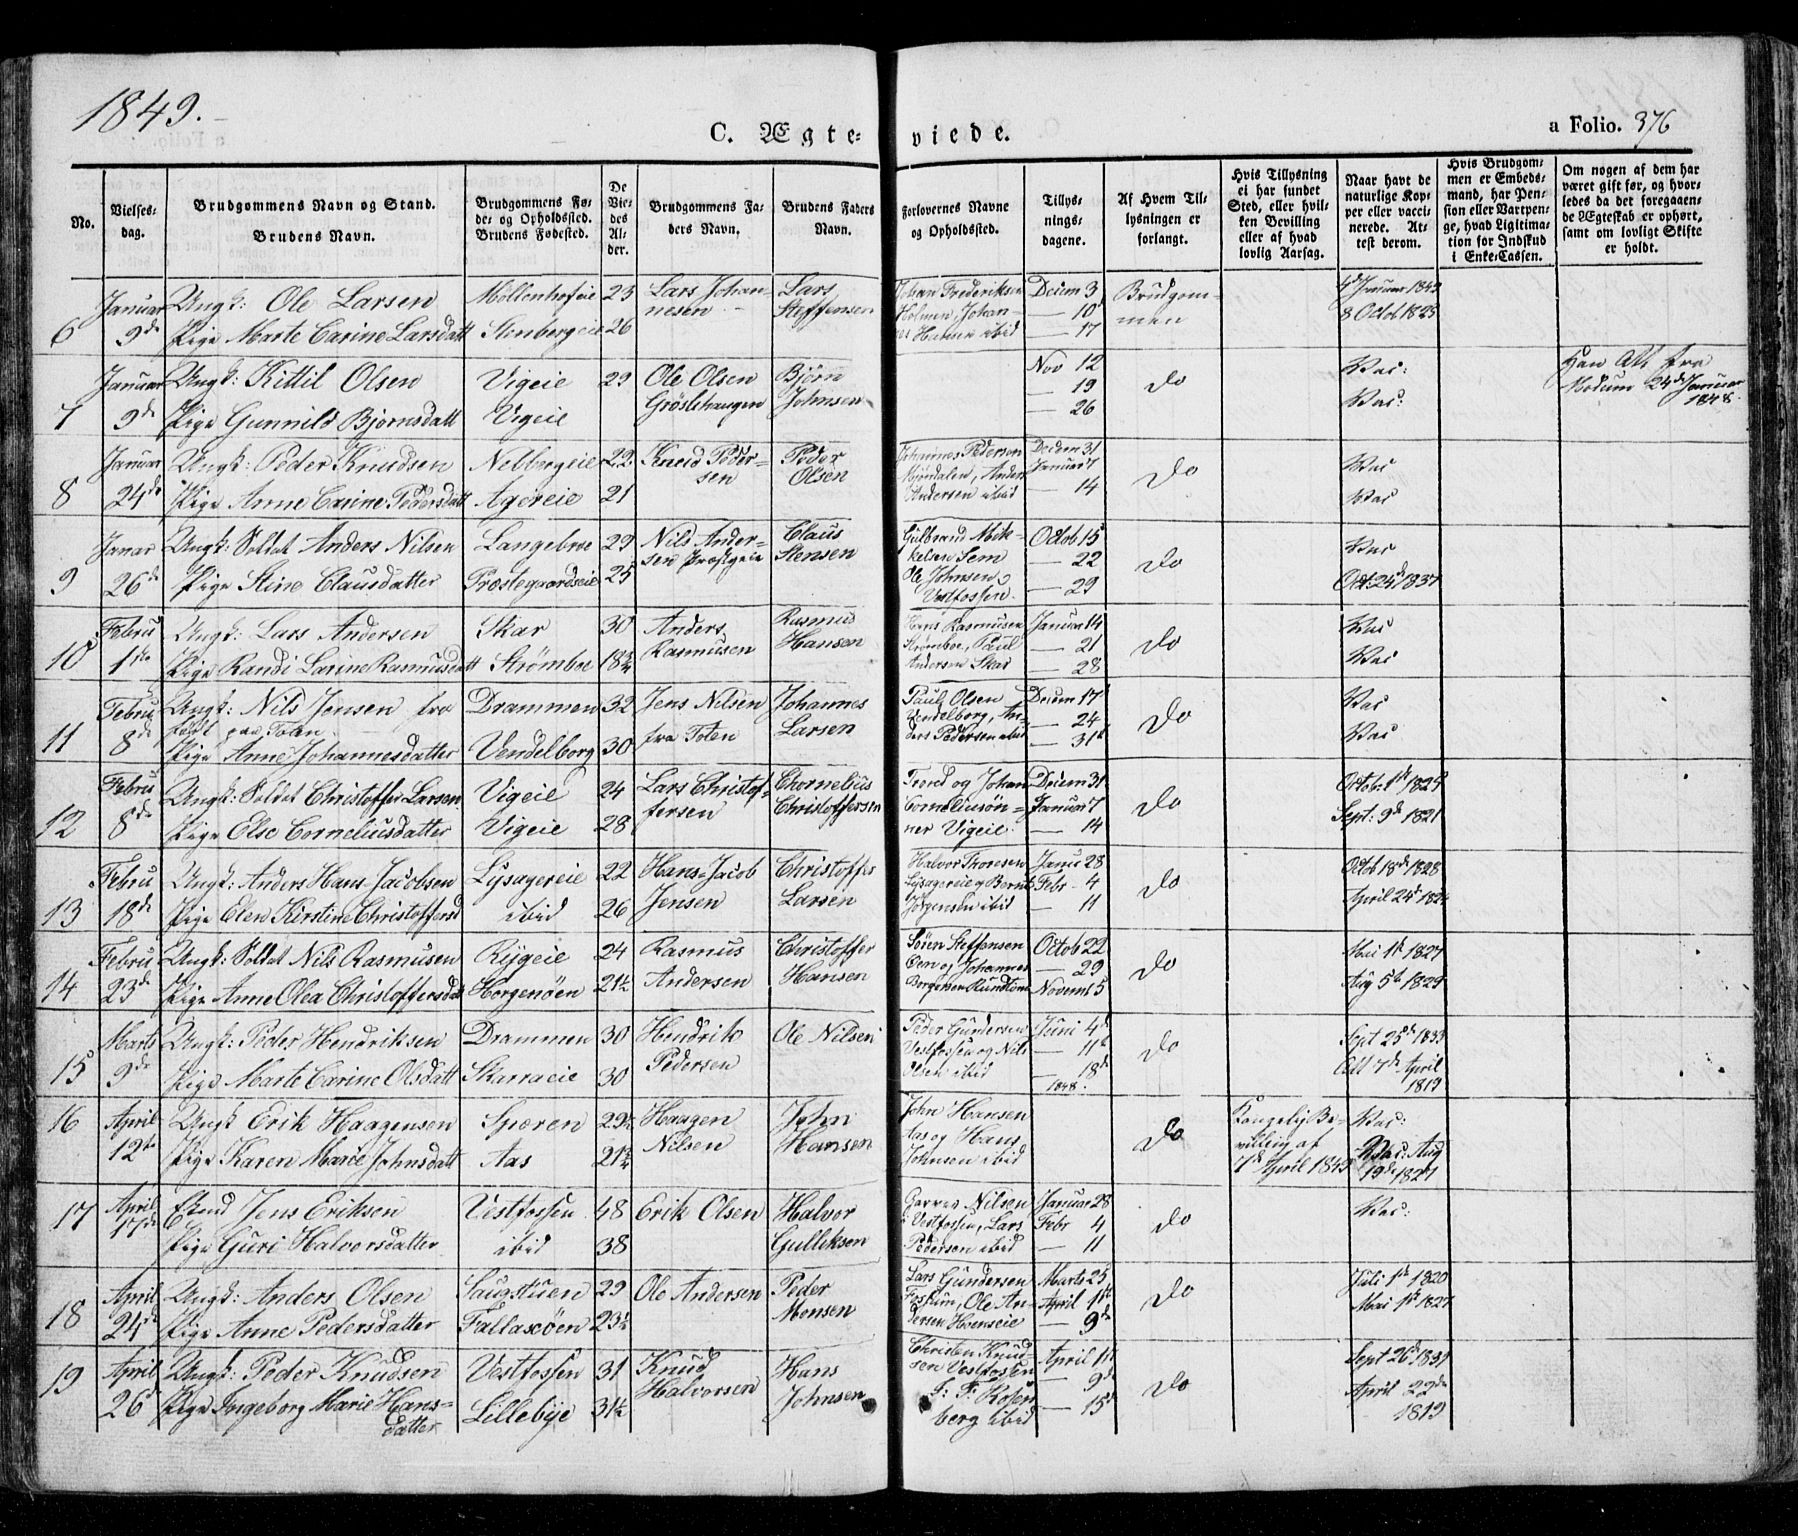 1849.
C. Ægteviede.
a Folio. 376
No.
Vielsesdag.
Brudgommens Navn og Stand.
Brudens Navn.
Brudgommens Føde- og Opholdssted.
Brudens Fødested.
De Viedes Alder.
Brudgommens Faders Navn.
Brudens Faders Navn.
Forlovernes Navne og Opholdssted.
Tillysningsdagene.
Af Hvem Tillysningen er forlangt.
Hvis Tillysning ei har fundet Sted, eller hvilken Bevilling eller af hvad lovlig Aarsag.
Naar havt de naturlige Kopper eller vaccinerede. Attest derom.
Hvis Brudgommen er Embedsmand, har Pension eller Vartpenge, hvad Legitimation for Indskud i Enke-Cassen.
Om nogen af dem har været gift før, og hvorledes da det foregaaende Ægteskab er ophørt, samt om lovligt Skifte er holdt.
6 Januar 9de Ungk: Ole Larsen Möllenhofeie 23 Lars Johannesen Lars Steffensen Johan Frederiksen Holmen, Johannes Hansen ibid Decem 3 — 10 — 17 Brudgommen
Pige Marte Carine Larsdatt Stenbergeie 26 8 Octob 1825
7 Januar 9de Ungk: Kittil Olsen Vigeie 29 Ole Olsen Gröslehaugen Björn Johnsen Nov 12 — 19 — 26 do Vac: Han Att. fra Modum 24de Januar 1848.
Pige Gunnild Bjornsdatt Vigeie Vac:
8 Januar 24de Ungk: Peder Knudsen Nelbergeie 22 Knud Pedersen Peder Olsen Johannes Pedersen Mjöndalen, Anders Andersen ibid Decem 31 Januar 7 — 14 do Vac
Pige Anne Carine Pedersdatt Agereie 21 Vac
9 Janar 26de Ungk: Soldat Anders Nilsen Langebroe 29 Nils Andersen Præstgeie Claus Stensen Gulbrand Mikkelsen Sem Ole Johnsen Vestfossen. Octob 15 — 22 — 29 do Vac
Pige Stine Clausdatter Præstegaardseie 25 Oct 24de 1837
10 Febru 1ste Ungk: Lars Andersen Skar 30 Anders Rasmusen Rasmus Hansen Hans Rasmusen Strömboe, Paul Andersen Skar Januar 14 — 21 — 28 do Vac
Pige Randi Larine Rasmusdatt Strømboe 18¾ Vac
11 Febru 8de Ungk: Nils Jensen fra Drammen 32 Jens Nilsen fra Toten Johannes Larsen Paul Olsen Vendelborg, Anders Pedersen ibid Decem 17 — 24 — 31 do Vac
født paa Toten
Pige Anne Johannesdatter Vendelborg 30 Vac
12 Febru 8de Ungk: Soldat Christoffer Larsen Vigeie 24 Lars Christoffersen Chornelius Christoffersen Trond og Johan Cornelius­önner Vigeie. Decem 31 Januar 7 — 14 do Octob: 1ste 1829
Pige Else Corneliusdatter Vigeie 28 Sept: 9de 1821
13 Febru 18de Ungk: Anders Hans-Jacobsen Lysagereie 22 Hans-Jacob Jensen Christoffer Larsen Halvor Thoresen Lysagereie og Bernt Jörgensen ibid Janu 28 Febr 4 — 11 do Octob 18de 1828
Pige Elen Kirstine Christoffersd ibid 26 April 24de 1824
14 Febru 23de Ungk: Soldat Nils Rasmusen Rygeie 24 Rasmus Andersen Christoffer Hansen Sören Steffensen Oen og Johannes Borgersen Rundtom Octob 22 — 29 Novem 5 do Mai 1ste 1827
Pige Anne Olea Christoffersdatt Horgenöen 21½ Aug 5te 1829
15 Marts 9de Ungk: Peder Hendriksen Drammen 30 Hendrik Pedersen Ole Nilsen Peder Gundersen Vestfossen og Nils Olsen ibid Juni 4de — 11te — 18de 1848. do Sept 25de 1833
Pige Marte Carine Olsdatt Skarraeie 30 Att 7de April 1819
16 April 12te Ungk Erik Haagensen Spæren 29½ Haagen Nilsen John Hansen John Hansen Aas og Hans Johnsen ibid do Kongelig Bevilling af 7de April 1849 Vac:
Pige Karen Marie Johnsdatt Aas 21¾ Vac: Aug 19de 1827
17 April 17de Ekmd Jens Eriksen Vestfossen 48 Erik Olsen Halvor Gulliksen Nilsen i Vestfossen, Lars Pedersen ibid Januar 28 Febr 4 — 11 do Vac:
Pige Guri Halvorsdatter ibid 38
18 April 24de Ungk: Anders Olsen Saugstuen 29 Ole Andersen Peder Monsen Lars Gundersen Foskum, Ole Andersen Hoenseie Marts 25 April 1ste — 9de do Juli 1ste 1820
Pige Anne Pedersdatter Fallasöen 23½ Mai 1ste 1827
19 April 26de Ungk: Peder Knudsen Vestfossen 31 Knud Halvorsen Hans Johnsen Christen Knudsen Vestfossen J: F: Rosenberg ibid April 1ste — 9de — 15de do Sept 26de 1831
Pige Ingeborg Marie Hansdatter Lillebye 31½ April 22de 1819